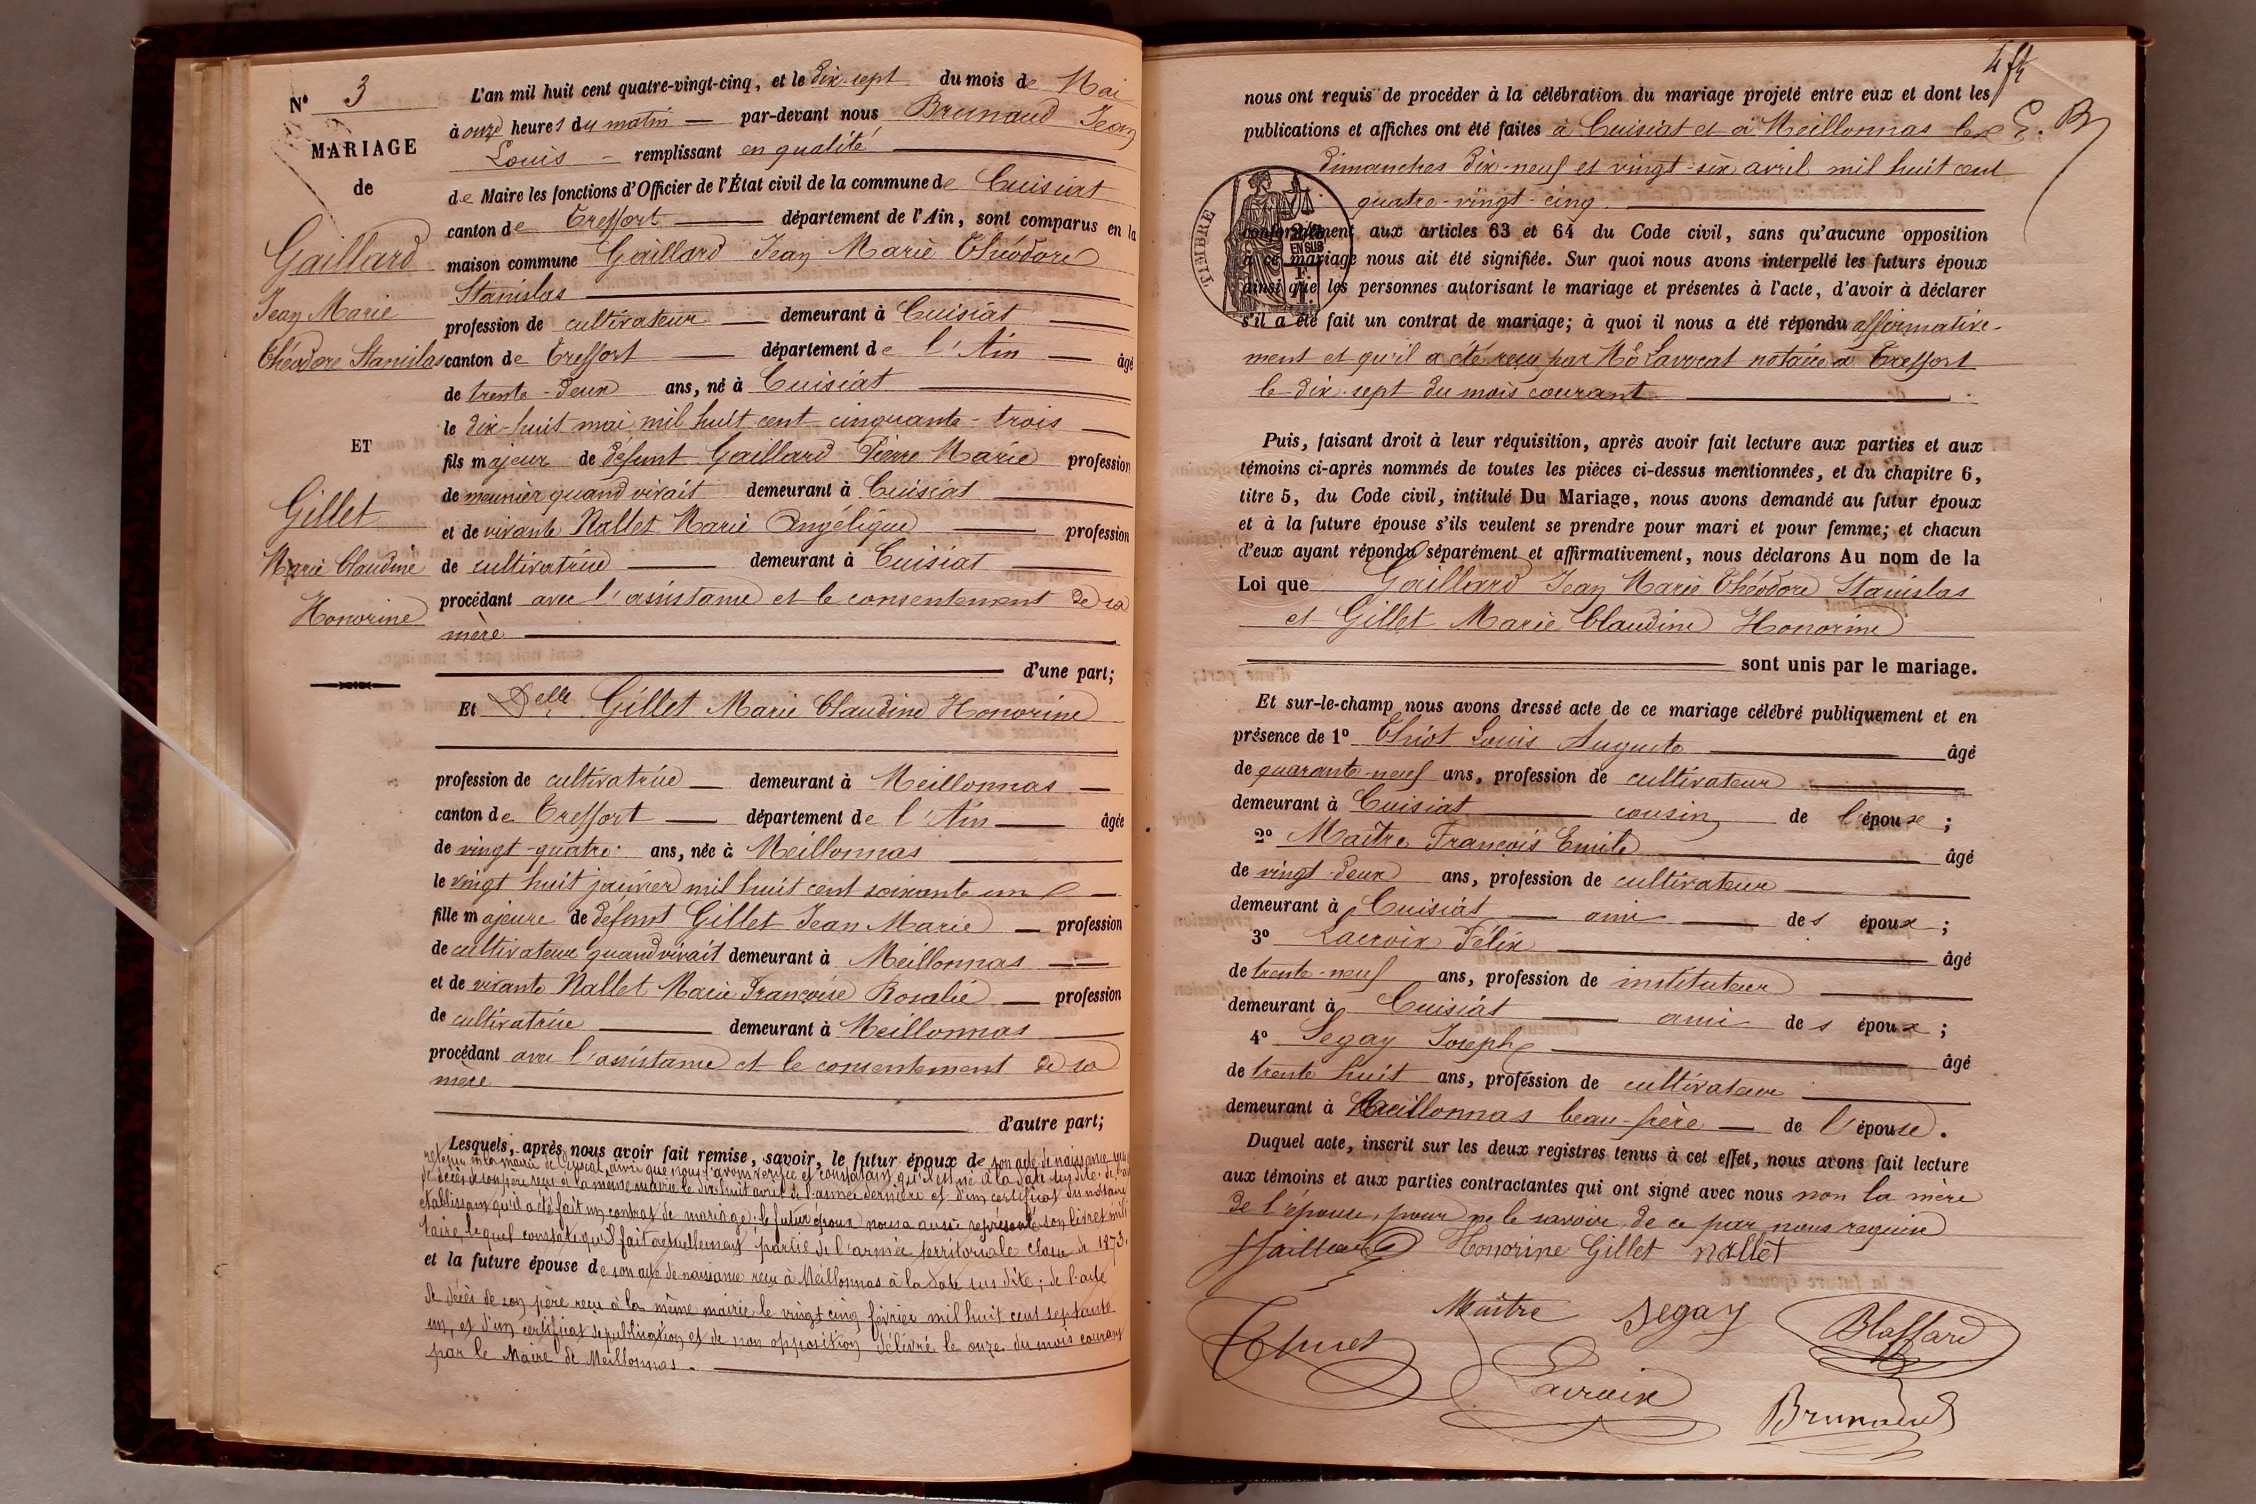 N° 3
MARIAGE
de
Gaillard
Jean Marie
Théodore Stanislas
ET
Gillet
Marie Claudine
Honorine
L'an mil huit cent quatre-vingt-cinq, et le dix-sept du mois de Mai
à onze heures du matin — par-devant nous Brunaud Jean
Louis — remplissant en qualité
de Maire les fonctions d'Officier de l'État civil de la commune de Cuisiat
canton de Treffort — département de l'Ain, sont comparus en la
maison commune Gaillard Jean Marie Théodore
Stanislas
profession de cultivateur — demeurant à Cuisiat
canton de Treffort — département de l'Ain — âgé
de trente-deux ans, né à Cuisiat
le dix-huit mai mil huit cent cinquante-trois
fils majeur de défunt Gaillard Pierre Marie profession
de meunier quand vivait demeurant à Cuisiat
et de vivante Nallet Marie Angélique — profession
de cultivatrice — demeurant à Cuisiat
procédant avec l'assistance et le consentement de sa
mère
d'une part;
Et Delle Gillet Marie Claudine Honorine
profession de cultivatrice — demeurant à Meillonnas
canton de Treffort — département de l'Ain — âgée
de vingt-quatre ans, née à Meillonnas
le vingt huit janvier mil huit cent soixante un
fille majeure de défunt Gillet Jean Marie — profession
de cultivateur quand vivait demeurant à Meillonnas
et de vivante Nallet Marie Françoise Rosalie — profession
de cultivatrice — demeurant à Meillonnas
procédant avec l'assistance et le consentement de sa
mère
d'autre part;
Lesquels, après nous avoir fait remise, savoir, le futur époux de son acte de naissance
mairie de Cuisiat, ainsi que nous l'avons vérifié et constatant qu'il est né à la date sus dite; de l'acte
de décès de son père reçu à la même mairie le dix huit avril de l'année dernière et d'un certificat du notaire
établissant qu'il a été fait un contrat de mariage; le futur époux nous a aussi représenté son livret mili
taire, lequel constate qu'il fait actuellement partie de l'armée territoriale classe de 1873.
et la future épouse de son acte de naissance reçu à Meillonnas à la date sus dite; de l'acte
de décès de son père reçu à la même mairie le vingt cinq février mil huit cent septante
un, et d'un certificat de publication et de non opposition délivré le onze du mois courant
par le Maire de Meillonnas.
nous ont requis de procéder à la célébration du mariage projeté entre eux et dont les
publications et affiches ont été faites à Cuisiat et à Meillonnas les E. B
dimanches dix-neuf et vingt-six avril mil huit cent
quatre-vingt-cinq
TIMBRE
EN SUS
conformément aux articles 63 et 64 du Code civil, sans qu'aucune opposition
à ce mariage nous ait été signifiée. Sur quoi nous avons interpellé les futurs époux
ainsi que les personnes autorisant le mariage et présentes à l'acte, d'avoir à déclarer
s'il a été fait un contrat de mariage; à quoi il nous a été répondu affirmative-
ment et qu'il a été reçu par Me Lavocat notaire à Treffort
le dix-sept du mois courant
Puis, faisant droit à leur réquisition, après avoir fait lecture aux parties et aux
témoins ci-après nommés de toutes les pièces ci-dessus mentionnées, et du chapitre 6,
titre 5, du Code civil, intitulé Du Mariage, nous avons demandé au futur époux
et à la future épouse s'ils veulent se prendre pour mari et pour femme; et chacun
d'eux ayant répondu séparément et affirmativement, nous déclarons Au nom de la
Loi que Gaillard Jean Marie Théodore Stanislas
et Gillet Marie Claudine Honorine
sont unis par le mariage.
Et sur-le-champ nous avons dressé acte de ce mariage célébré publiquement et en
présence de 1° Thiot Louis Auguste — âgé
de quarante-neuf ans, profession de cultivateur
demeurant à Cuisiat — cousin de l'époux;
2° Maître François Emile — âgé
de vingt-deux ans, profession de cultivateur
demeurant à Cuisiat — ami — des époux;
3° Lacroix Félix — âgé
de trente-neuf ans, profession de instituteur
demeurant à Cuisiat — ami des époux;
4° Segay Joseph — âgé
de trente huit ans, profession de cultivateur
demeurant à Meillonnas beau-frère — de l'épouse.
Duquel acte, inscrit sur les deux registres tenus à cet effet, nous avons fait lecture
aux témoins et aux parties contractantes qui ont signé avec nous non la mère
de l'épouse, pour ne le savoir, de ce par nous requise
Gaillard Honorine Gillet nallet
Maître Segay Blaffard
Lacroix
Brunaud